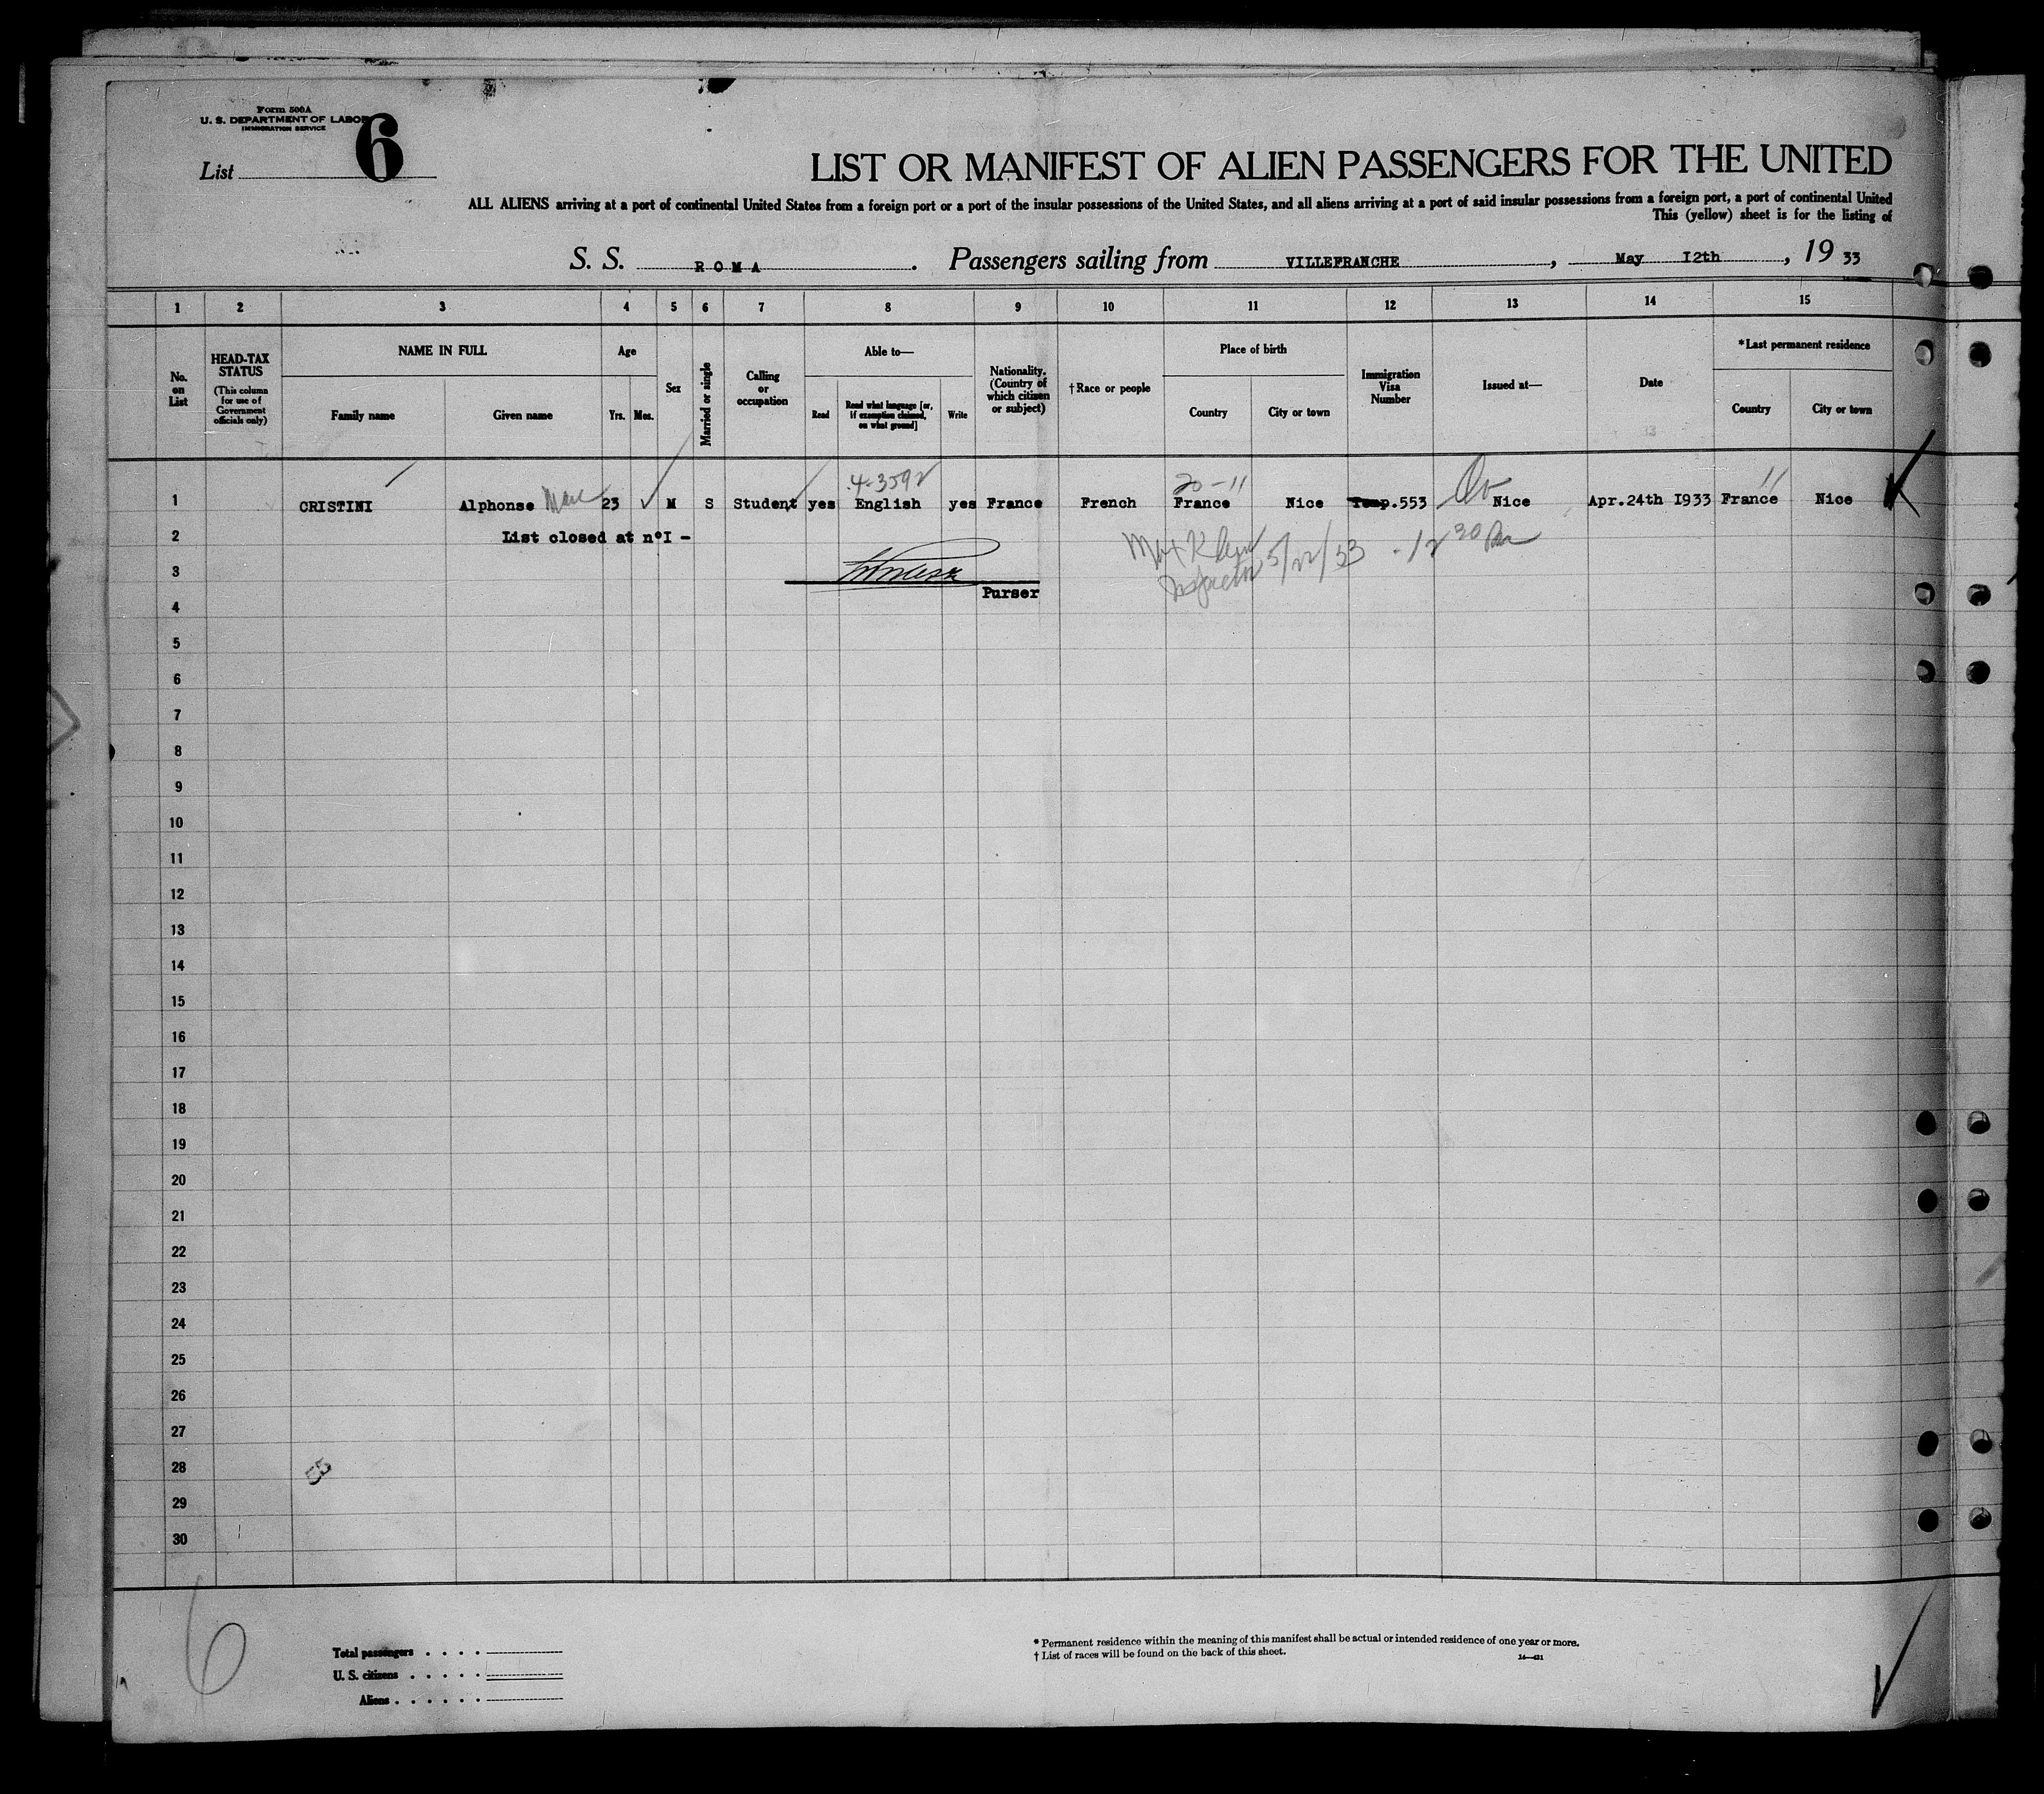 Form 500A
U. S. DEPARTMENT OF LABOR
IMMIGRATION SERVICE
List 6
LIST OR MANIFEST OF ALIEN PASSENGERS FOR THE UNITED
ALL ALIENS arriving at a port of continental United States from a foreign port or a port of the insular possessions of the United States, and all aliens arriving at a port of said insular possessions from a foreign port, a port of continental United
This (yellow) sheet is for the listing of
S. S. ROMA. Passengers sailing from VILLEFRANCHE, May I2th, 19 33
1 2 3 4 5 6 7 8 9 10 11 12 13 14 15
No. on List
HEAD-TAX STATUS (This column for use of Government officials only)
NAME IN FULL
Family name
Given name
Age
Yrs. Mos.
Sex
Married or single
Calling or occupation
Able to—
Read
Read what language [or, if exemption claimed, on what ground]
Write
Nationality. (Country of which citizen or subject)
†Race or people
Place of birth
Country
City or town
Immigration Visa Number
Issued at—
Date
*Last permanent residence
Country
City or town
4-3592 20-11 11
1 CRISTINI Alphonse 23 M S Student yes English yes France French France Nice Temp.553 Nice Apr.24th I933 France Nice
2 List closed at n°I -
Max Klein Inspector 5/22/33 - 12 30 Pm
3
Purser
4
5
6
7
8
9
10
11
12
13
14
15
16
17
18
19
20
21
22
23
24
25
26
27
28
29
30
6
Total passengers
U. S. citizens
Aliens
* Permanent residence within the meaning of this manifest shall be actual or intended residence of one year or more.
† List of races will be found on the back of this sheet.
14—431